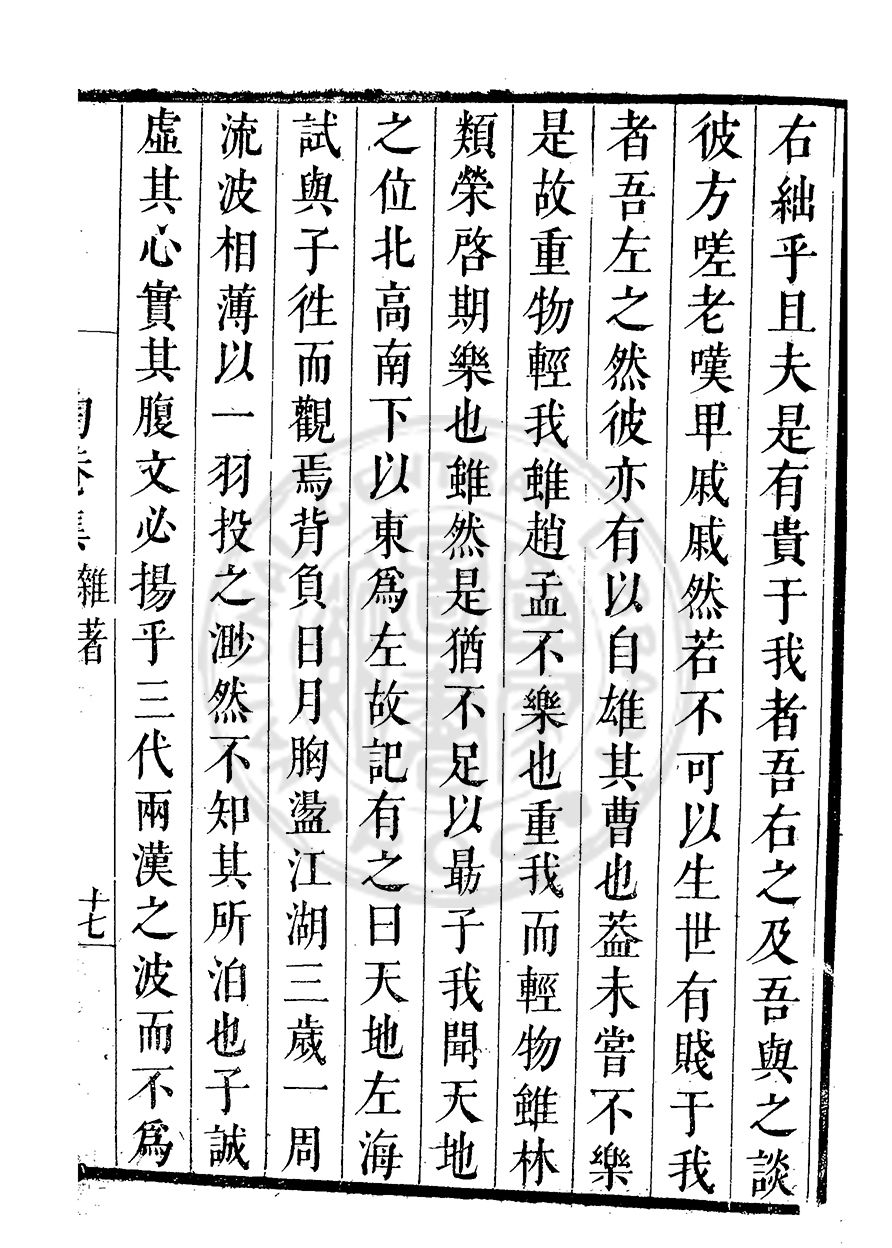 右絀乎且夫是有貴于我者吾右之及吾與之談
彼方嗟老嘆卑戚戚然若不可以生世有賤于我
者吾左之然彼亦有以自雄其曹也葢未嘗不樂
是故重物輕我雖趙孟不樂也重我而輕物雖林
類榮啓期樂也雖然是猶不足以勗子我聞天地
之位北高南下以東爲左故記有之曰天地左海
試與子徃而觀焉背負日月胸盪江湖三歲一周
流波相薄以一羽投之渺然不知其所泊也子誠
虛其心實其腹文必揚乎三代兩漢之波而不爲
集 雜著
十七